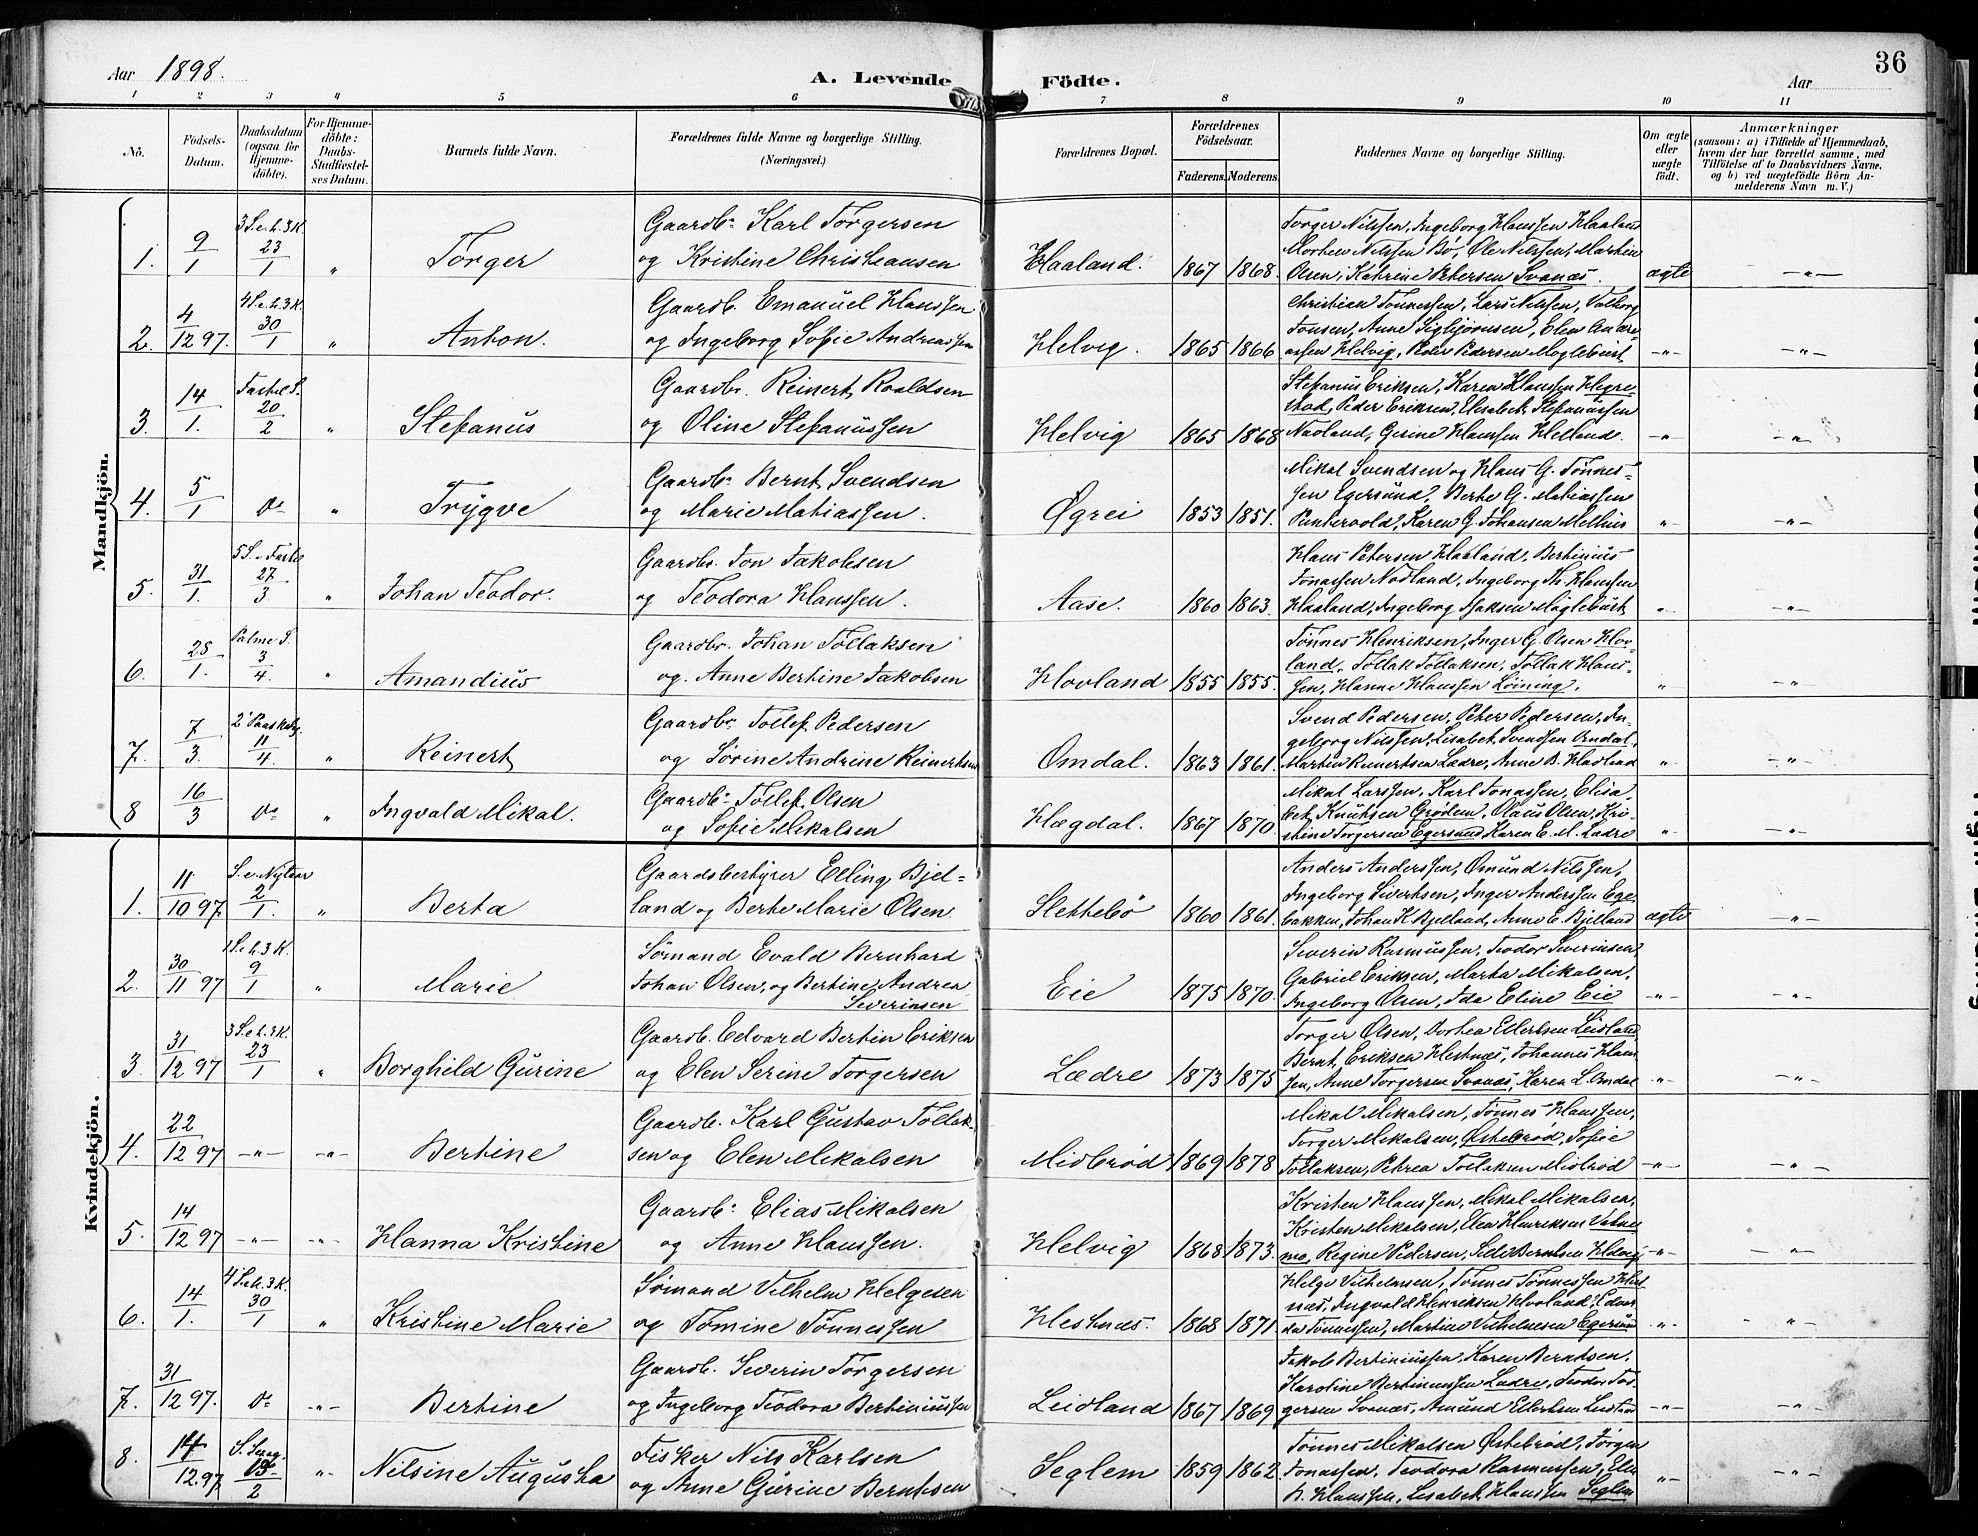 Aar 1898. A. Levende Födte. Aar 36
1 2 3 4 5 6 7 8 9 10 11
No. Födsels-Datum. Daabsdatum (ogsaa for Hjemme-döbte). For Hjemme-döbte: Daabs-Stadfæstel-ses Datum. Barnets fulde Navn. Forældrenes fulde Navne og borgerlige Stilling. (Næringsvei.) Forældrenes Bopæl. Forældrenes Födselsaar. Faderens. Moderens. Faddernes Navne og borgerlige Stilling. Om ægte eller uægte födt. Anmærkninger (sansom: a) i Tilfælde af Hjemmedaab, hvem der har forrettet samme, med Tilföielse af to Daabsvidners Navne, og b) ved uægtefödte Börn An-melderens Navn m. V.)
Mandkjön.
1. 9/1 3 S.e.h.3K. 23/1 " Torger Gaardbr. Karl Torgersen
og Kristine Christeansen Haaland. 1867 1868. ægte -"-
Torger Nilssen, Ingeborg Hanssen Haaland
Morten Nilssen Bø, Ole Nilssen, Martin
Olsen, Katrine Petersen Svanæs.
2. 4/12 97. 4 S.e.h.3K. 30/1 " Anton. Gaardb. Emanuel Hanssen
og Ingeborg Sofie Andreassen Helvig. 1865 1866 -"- -"-
Christian Tønnessen, Lars Nilssen, Valborg
Jonsen, Anne Sigbjørnsen, Elen Andre-
assen Helvig, Peder Pedersen Mogleburst
3. 14/1. Fastel. S. 20/2 " Stefanus Gaardbr. Reinert Roaldsen
og Oline Stefanussen Helvig 1865 1868 -"- -"-
Stefanus Eriksen, Karen Hanssen Hegre-
stad, Peder Eriksen, Elisabet Stefanussen
Nadland, Gerine Hanssen Helland.
4. 5/1 do " Trygve Gaardbr. Bernt Svendsen
og Marie Matiassen. Øgrei 1853 1851. " -"-
Mikal Svendsen og Hans G. Tønnes-
sen Egersund, Berte G. Matiassen
Puntervold, Karen G. Johansen Melhus
5. 31/1. 5 S. i Faste 27/3. " Johan Teodor. Gaardbr. Jon Jakobsen
og Teodora Hanssen. Aase. 1860 1863. " -"-
Hans Petersen Haaland, Bertinius
Jonassen Nodland, Ingeborg Th. Hanssen
Haaland, Ingeborg Isaksen Mogleburst
6. 25/1. Palme S. 3/4. " Amandius Gaardbr. Johan Tollaksen
og. Anne Bertine Jakobsen Hovland 1855 1855. " -"-
Tønnes Henriksen, Inger G. Olsen Hov-
land, Tollak Tollaksen, Tollak Hans-
sen, Hanne Hanssen Løining.
7. 7/3. 2 Paaskedg. 11/4. " Reinert Gaardbr. Tollef Pedersen
og Sørine Andrene Reinertsen Omdal. 1863 1861. " -"-
Svend Pedersen, Peter Pedersen, In-
geborg Nilssen, Lisabet Svendsen Omdal,
Martin Reinertsen Lædre, Anne B. Hadland
8 16/3 do " Ingvald Mikal. Gaardbr. Tollef Olsen
og Sofie Mikalsen Hægdal. 1867 1870. " -"-
Mikal Larssen, Karl Jonassen, Elisa-
bet Knutsen Grødem, Olaus Olsen, Kri-
stine Torgersen Egersund, Karen E. M. Lædre
Kvindekjön.
1. 11/10 97. S.e. Nytaar 2/1. " Berta Gaardsbestyrer Elling Bjel-
land og Berte Marie Olsen. Slettebø 1860 1861. ægte -"-
Anders Anderssen, Ømund Nilssen,
Ingeborg Sivertsen, Inger Anderssen Ege-
bakken, Johan K. Bjelland, Anne E. Bjelland
2. 30/11 97 1 S.e.h.3K. 9/1 " Marie Sømand Evald Bernhard
Johan Olsen, og Bertine Andrea
Severinsen Eie 1875 1870. -"- -"-
Severin Rasmussen, Teodor Severinsen
Gabriel Eriksen, Marta Mikalsen,
Ingeborg Olsen, Ida Eline Eie
3. 31/12 97 3 S.e.h.3K. 23/1 " Borghild Gurine Gaardb. Edvard Bertin Eriksen
og Elen Serine Torgersen Lædre 1873 1875 -"- -"-
Torger Olsen, Dorthea Ellertsen Leidland
Bernt Eriksen Hestnæs, Johannes Hans-
sen, Anne Torgersen Svanæs, Karen L. Omdal
4. 22/12 97 -"- -"- Bertine Gaardb. Karl Gustav Tollak-
sen og Elen Mikalsen Midbrød 1869 1878 -"- -"-
Mikal Mikalsen, Tønnes Hanssen,
Torger Mikalsen, Østebrød, Sofie
Tollaksen, Petrea Tollaksen Midbrød
5. 14/12 97 -"- -"- Hanna Kristine Gaardbr. Elias Mikalsen
og Anne Hanssen. Helvig 1868 1873. -"- -"-
Kristen Hanssen, Mikal Mikalsen,
Kristen Mikalsen, Elen Henriksen
Regine Pedersen, Berntsen Helvig
6. 14/1. 4 S.e.h.3K. 30/1 " Kristine Marie Sømand Vilhelm Helgesen
og Tomine Tønnessen Hestnæs. 1868 1871. -"- -"-
Helge Vilhelmsen, Tønnes Tønnessen Hest-
næs, Ingvald Henriksen Hovland, Edvar-
da Tønnessen, Martine Vilhelmsen Egersund
7. 31/12 97. do -"- Bertine Gaardb. Severin Torgersen
og Ingeborg Teodora Bertiniussen Leidland 1867 1869 -"- -"-
Jakob Bertiniussen, Karen Berntsen,
Karoline Bertiniussen Lædre, Teodor Tor-
gersen Svanæs, Amund Ellertsen Leidland
8. 14/12.97 S. Sexag. 13/2 -"- Nilsine Augusta Fisker Nils Karlsen
og Anne Gurine Berntsen Seglem 1859 1862. -"- -"-
Tønnes Mikalsen Østebrød, Jørgen
Jonassen, Teodora Rasmussen, Elen
Hanssen, Lisabet Hanssen Seglem